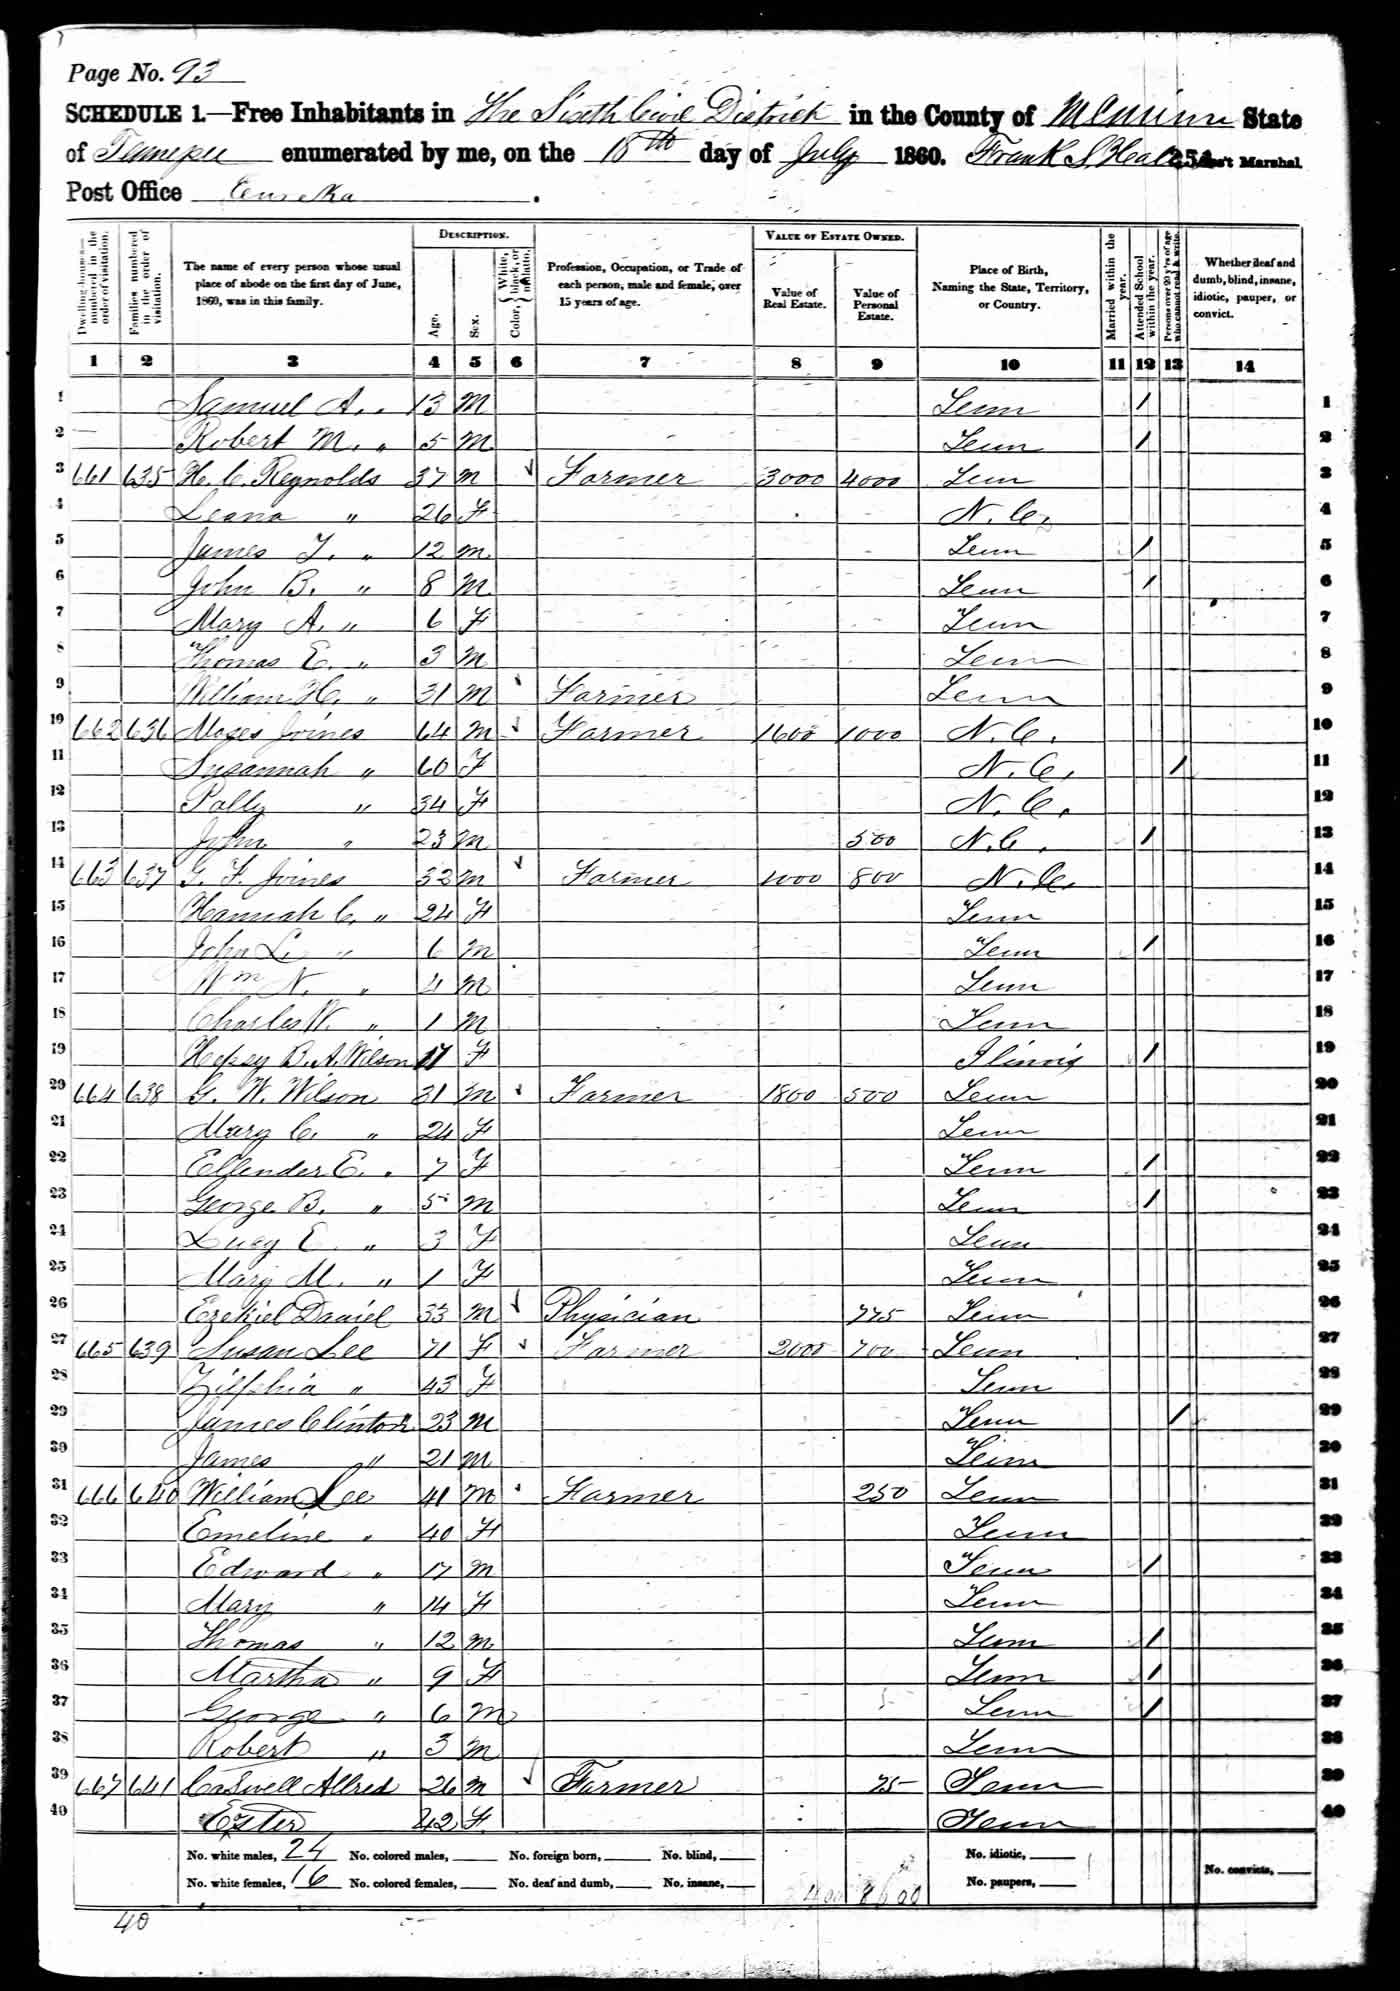 Page No. 93
SCHEDULE 1.—Free Inhabitants in The Sixth Civil District in the County of McMinn State
of Tennessee enumerated by me, on the 18th day of July 1860. Frank S. Ass't Marshal.
Post Office Eureka.
Dwelling-houses—numbered in the order of visitation. Families numbered in the order of visitation. The name of every person whose usual place of abode on the first day of June, 1860, was in this family. DESCRIPTION. Age. Sex. Color, { White, black, or mulatto. Profession, Occupation, or Trade of each person, male and female, over 15 years of age. VALUE OF ESTATE OWNED. Value of Real Estate. Value of Personal Estate. Place of Birth, Naming the State, Territory, or Country. Married within the year. Attended School within the year. Persons over 20 y'rs of age who cannot read & write. Whether deaf and dumb, blind, insane, idiotic, pauper, or convict.
1 2 3 4 5 6 7 8 9 10 11 12 13 14
1 Samuel A. " 13 M Tenn 1 1
2 Robert M. " 5 M Tenn 1 2
3 661 635 H. C. Reynolds 37 M Farmer 3000 4000 Tenn 3
4 Leana " 26 F N. C. 4
5 James T. " 12 M Tenn 1 5
6 John B. " 8 M Tenn 1 6
7 Mary A. " 6 F Tenn 7
8 Thomas E. " 3 M Tenn 8
9 William H. " 31 M Farmer Tenn 9
10 662 636 Moses Joines 64 M Farmer 1600 1000 N. C. 10
11 Susannah " 60 F N. C. 1 11
12 Polly " 34 F N. C. 12
13 John " 23 M 500 N. C. 1 13
14 663 637 G. F. Joines 32 M Farmer 1000 800 N. C. 14
15 Hannah C. " 24 F Tenn 15
16 John L. " 6 M Tenn 1 16
17 Wm N. " 4 M Tenn 17
18 Charles W. " 1 M Tenn 18
19 Hepsy B. A. Wilson 17 F Ilinois 1 19
20 664 638 G. W. Wilson 31 M Farmer 1800 500 Tenn 20
21 Mary C. " 24 F Tenn 21
22 Ellender E. " 7 F Tenn 1 22
23 George B. " 5 M Tenn 1 23
24 Lucy E. " 3 F Tenn 24
25 Mary M. " 1 F Tenn 25
26 Ezekiel Daniel 33 M Physician 775 Tenn 26
27 665 639 Susan Lee 71 F Farmer 2000 700 Tenn 27
28 Zilphia " 43 F Tenn 28
29 James Clinton " 23 M Tenn 1 29
30 James " 21 M Tenn 30
31 666 640 William Lee 41 M Farmer 250 Tenn 31
32 Emeline " 40 F Tenn 32
33 Edward " 17 M Tenn 1 33
34 Mary " 14 F Tenn 34
35 Thomas " 12 M Tenn 1 35
36 Martha " 9 F Tenn 1 36
37 George " 6 M Tenn 1 37
38 Robert " 3 M Tenn 38
39 667 641 Caswell Allred 26 M Farmer 75 Tenn 39
40 Ester 42 F Tenn 40
No. white males, 24 No. colored males, No. foreign born, No. blind, No. idiotic, No. convicts,
No. white females, 16 No. colored females, No. deaf and dumb, No. insane, No. paupers,
40